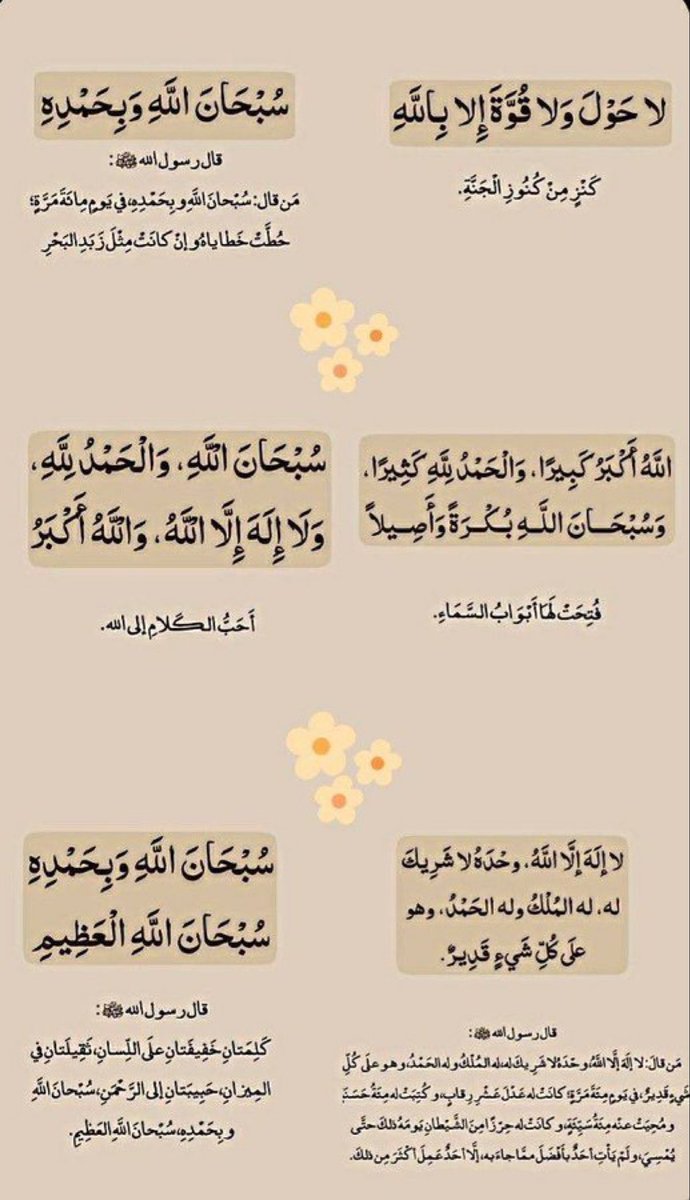 لا حَوْلَ وَلا قُوَّةَ إِلا بِاللَّهِ
كَنْزٍ مِنْ كُنُوزِ الْجَنَّةِ.
سُبْحَانَ اللَّهِ وَبِحَمْدِهِ
قال رسول الله ﷺ:
مَن قال: سُبْحانَ اللَّهِ وبِحَمْدِهِ، في يَومٍ مِائَةَ مَرَّةٍ؛
حُطَّتْ خَطاياهُ وإنْ كانَتْ مِثْلَ زَبَدِ البَحْرِ
اللَّهُ أَكْبَرُ كَبِيرًا، وَالْحَمْدُ لِلَّهِ كَثِيرًا،
وَسُبْحَانَ اللَّهِ بُكْرَةً وَأَصِيلاً
فُتِحَتْ لَهَا أَبْوَابُ السَّمَاءِ.
سُبْحَانَ اللَّهِ، وَالْحَمْدُ لِلَّهِ،
وَلَا إِلَهَ إِلَّا اللَّهُ، وَاللَّهُ أَكْبَرُ
أَحَبُّ الكَلامِ إلى الله.
لا إلَهَ إلَّا اللَّهُ، وحْدَهُ لا شَرِيكَ
له، له المُلْكُ وله الحَمْدُ، وهو
علَى كُلِّ شَيءٍ قَدِيرٌ.
قال رسول الله ﷺ:
مَن قالَ: لا إلَهَ إلَّا اللَّهُ، وحْدَهُ لا شَرِيكَ له، له المُلْكُ وله الحَمْدُ، وهو علَى كُلِّ
شَيءٍ قَدِيرٌ، في يَومٍ مِئَةَ مَرَّةٍ؛ كانَتْ له عَدْلَ عَشْرِ رِقابٍ، وكُتِبَتْ له مِئَةُ حَسَنَ
ومُحِيَتْ عنْه مِئَةُ سَيِّئَةٍ، وكانَتْ له حِرْزًا مِنَ الشَّيْطانِ يَومَهُ ذلكَ حتَّى
يُمْسِيَ، ولَمْ يَأْتِ أحَدٌ بأَفْضَلَ ممَّا جاءَ به، إلَّا أحَدٌ عَمِلَ أكْثَرَ مِن ذلكَ.
سُبْحَانَ اللَّهِ وَبِحَمْدِهِ
سُبْحَانَ اللَّهِ الْعَظِيمِ
قال رسول الله ﷺ:
كَلِمَتانِ خَفِيفَتانِ علَى اللِّسانِ، ثَقِيلَتانِ في
المِيزانِ، حَبِيبَتانِ إلى الرَّحْمَنِ، سُبْحانَ اللَّهِ
وبِحَمْدِهِ، سُبْحانَ اللَّهِ العَظِيمِ.